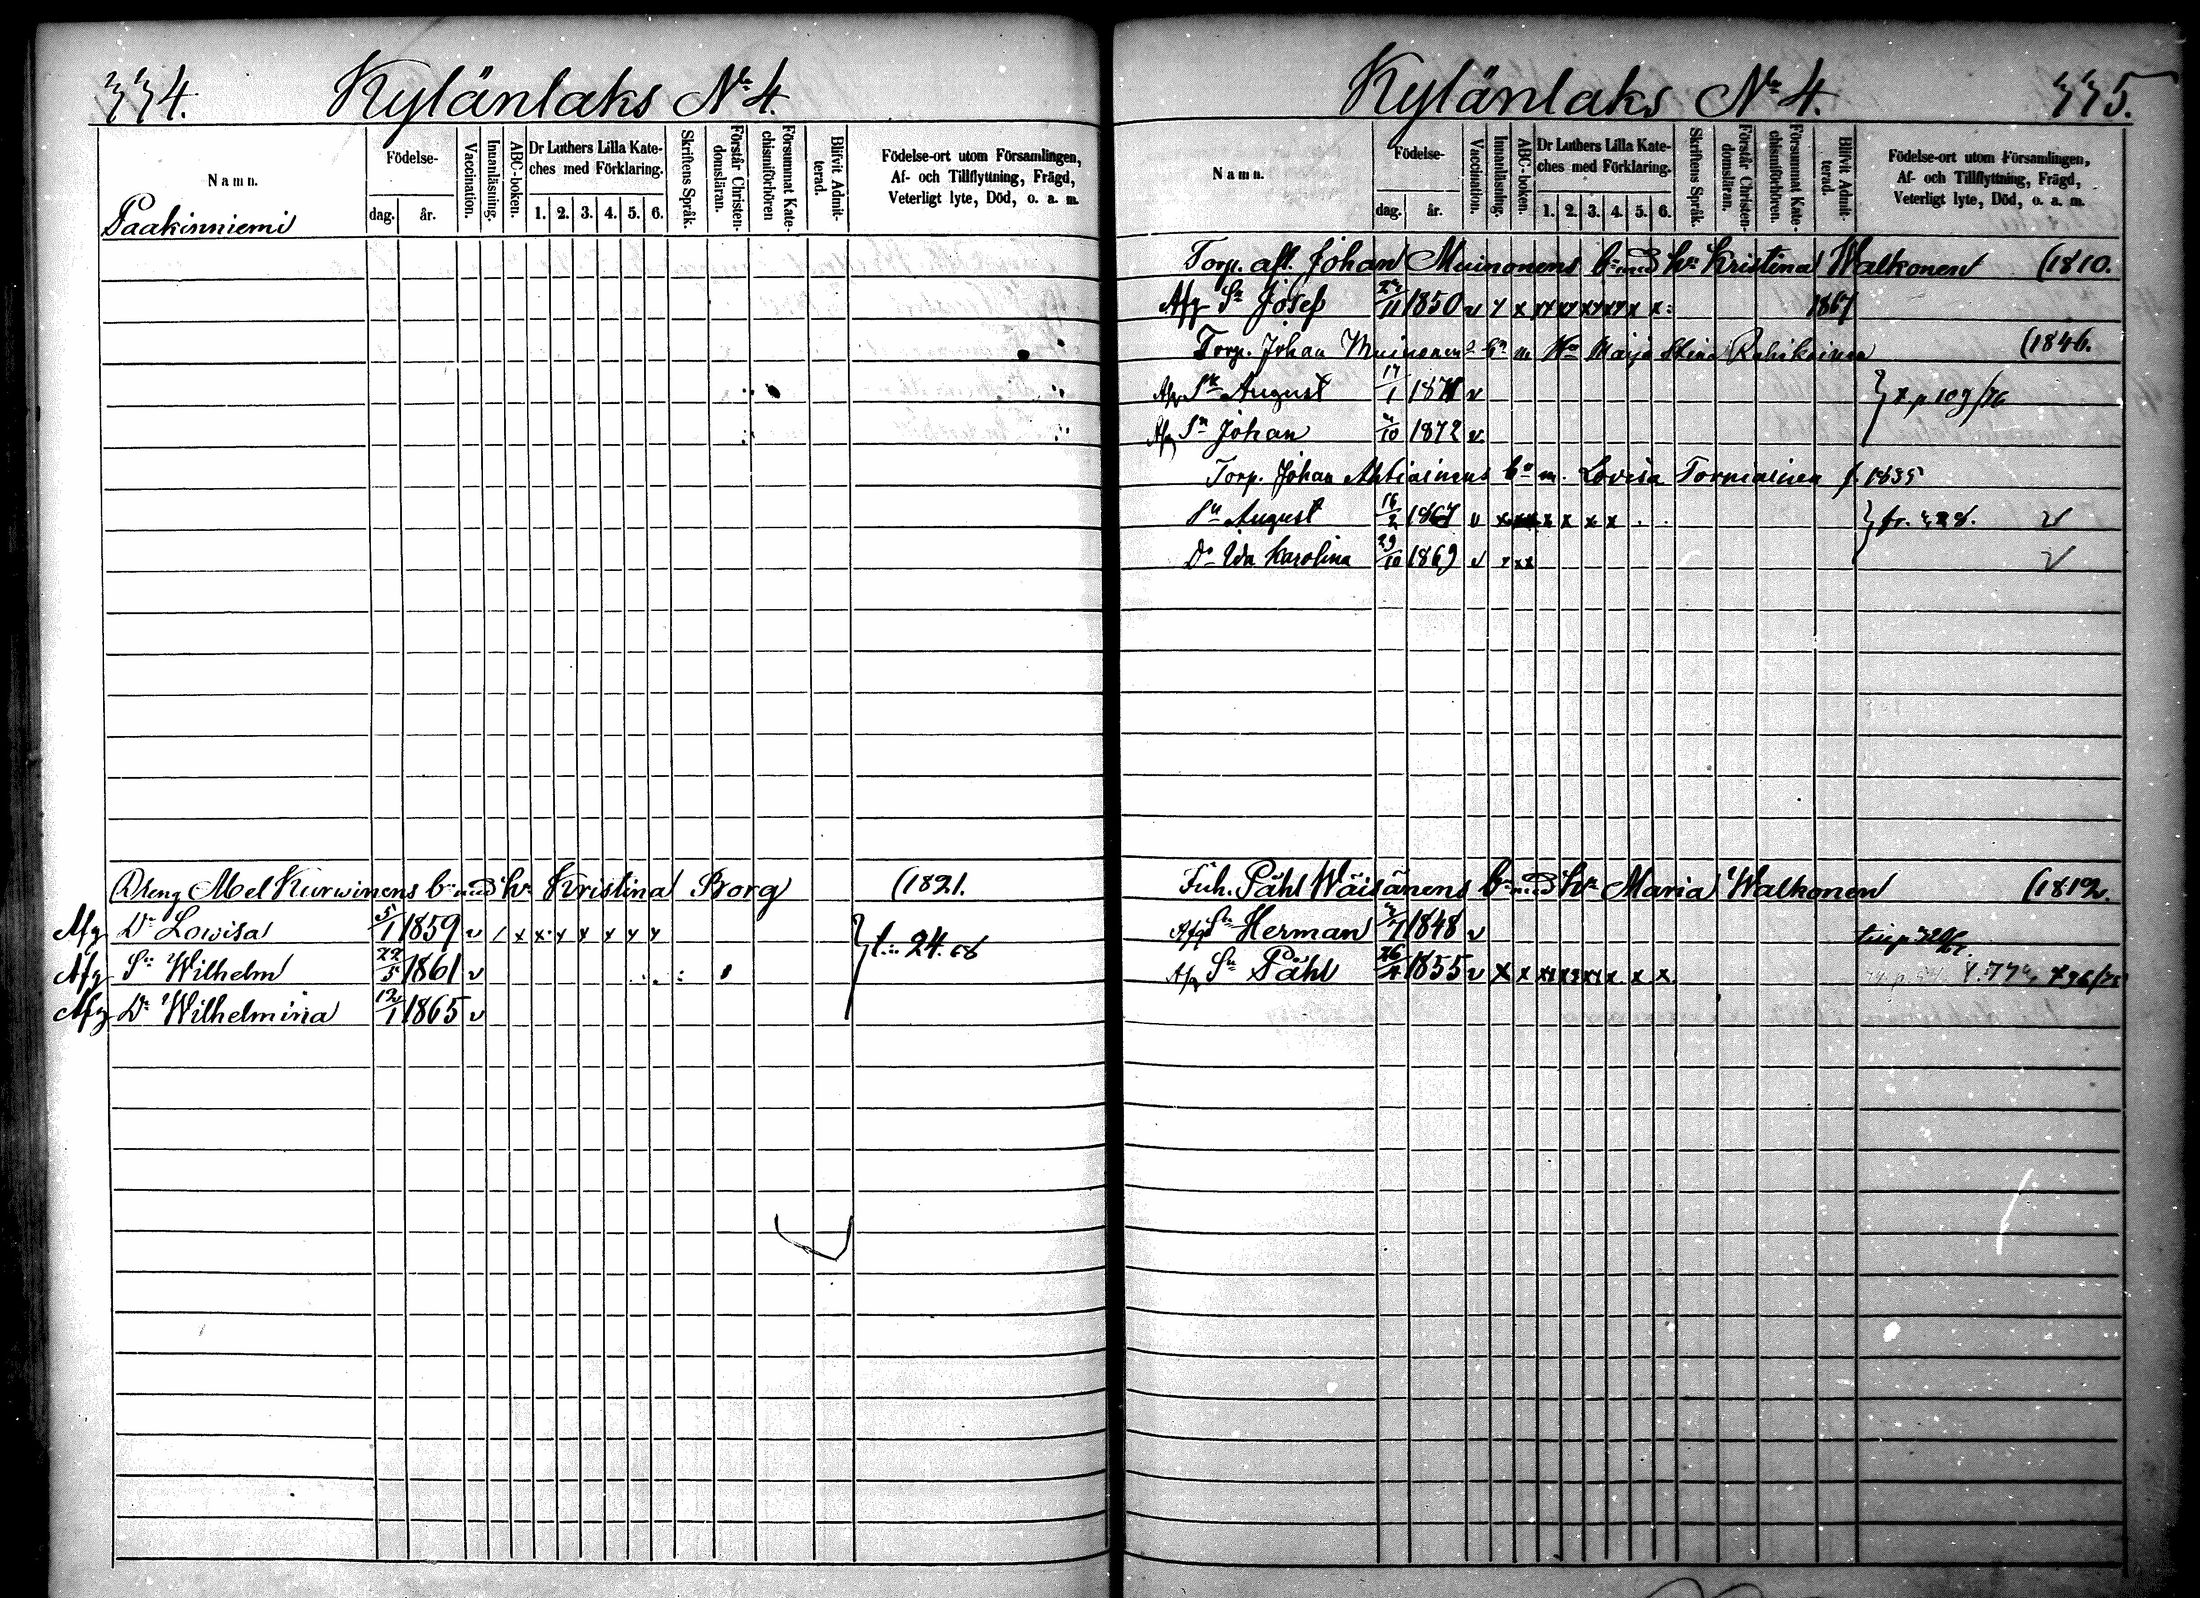 334. Kylänlaks No 4.
Namn.
Födelse-
dag.
år.
Vaccination.
Innanläsning.
ABC-boken.
Dr Luthers Lilla Kate-
ches med Förklaring.
1. 2. 3. 4. 5. 6.
Skriftens Språk.
Förstår Christen-
domsläran.
Försummat Kate-
chismiförhören
Blifvit Admit-
terad.
Födelse-ort utom Församlingen,
Af- och Tillflyttning, Frägd,
Veterligt lyte, Död, o. a. m.
Paakinniemi
Dreng Abel Kurwinens bn med hu Kristina Borg (1821.
Afg Dr Lowisa 5/1 1859 v / x x y x x y y
t. 24. 68
Afg Sn Wilhelm 22/5 1861 v
Afg Dr Wilhelmina 12/1 1865 v
Kylänlaks No 4. 335.
Namn.
Födelse-
dag.
år.
Vaccination.
Innanläsning.
ABC-boken.
Dr Luthers Lilla Kate-
ches med Förklaring.
1. 2. 3. 4. 5. 6.
Skriftens Språk.
Förstår Christen-
domsläran.
Försummat Kate-
chismiförhören.
Blifvit Admit-
terad.
Födelse-ort utom Församlingen,
Af- och Tillflyttning, Frägd,
Veterligt lyte, Död, o. a. m.
Torp. afl. Johan Muinonens bn med hu Kristina Walkonen (1810.
Afg Sn Josef 1850 v 1867
Torp. Johan Muinonens bn m Hu Maja Stina Rahikainen (1846.
Afg Sn August 17/1 1871 v
Afg Sn Johan 1872 v
Torp. Johan Ahtiainens bn m. Lovisa Tormainen f. 1835
Sn August 16/2 1867 v x x x x x . . v
Dr Ida Karolina 29/10 1869 v x x x v
Inh. Påhl Wäisänens bn med hu Maria Walkonen (1812.
Afg Sn Herman 1848 v
Afg Sn Påhl 26/4 1855 v x x x x x x x x